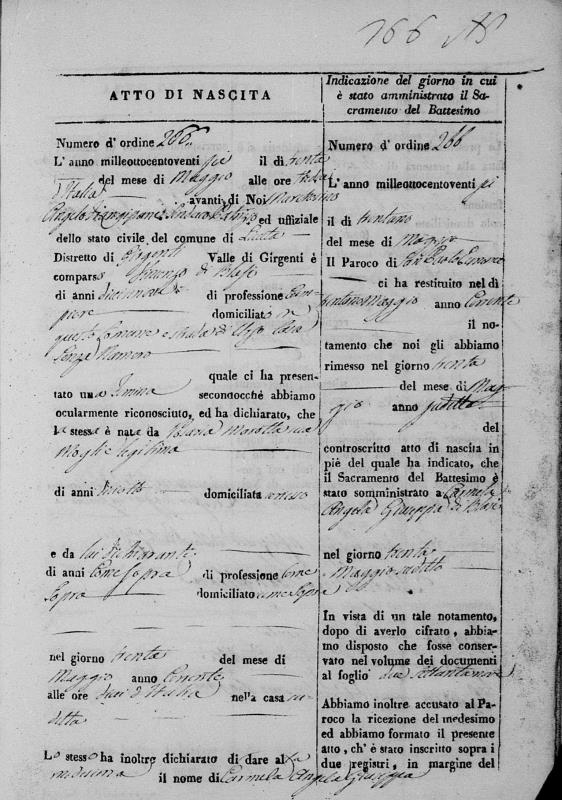 266
ATTO DI NASCITA
Numero d' ordine 266
L' anno milleottocentoventi sei il di trenta
del mese di Maggio alle ore
d'Italia avanti di Noi
Angelo Sindaco ed uffiziale
dello stato civile del comune di Licata
Distretto di Girgenti Valle di Girgenti è
comparso Vincenzo di Blasi
di anni diecinove di professione
domiciliato in
questo Comune strada di Casa
Senza Numero
quale ci ha presen-
tato una Femina secondocchè abbiamo
ocularmente riconosciuto, ed ha dichiarato, che
la stessa è nata da Marotta sua
moglie legitima
di anni diciotto domiciliata
e da lui dichiarante
di anni Come Sopra di professione Come
Sopra domiciliato come Sopra
nel giorno trenta del mese di
Maggio anno Corrente
alle ore dieci d'Italia nella casa su-
detta
Lo stesso ha inoltre dichiarato di dare alla
medesima il nome di Carmela Angela Giuseppa
Indicazione del giorno in cui
è stato amministrato il Sa-
cramento del Battesimo
Numero d' ordine 266
L' anno milleottocentoventi sei
il di trentuno
del mese di Maggio
Il Paroco di
ci ha restituito nel di
trentuno Maggio anno Corrente
il no-
tamento che noi gli abbiamo
rimesso nel giorno trenta
del mese di Mag-
gio anno sudetto
del
controscritto atto di nascita in
piè del quale ha indicato, che
il Sacramento del Battesimo è
stato somministrato a Carmela
Angela Giuseppa di Blasi
nel giorno trenta
Maggio sudetto
In vista di un tale notamento,
dopo di averlo cifrato, abbia-
mo disposto che fosse conser-
vato nel volume dei documenti
al foglio
Abbiamo inoltre accusato al Pa-
roco la ricezione del medesimo
ed abbiamo formato il presente
atto, ch' è stato inscritto sopra i
due registri, in margine del